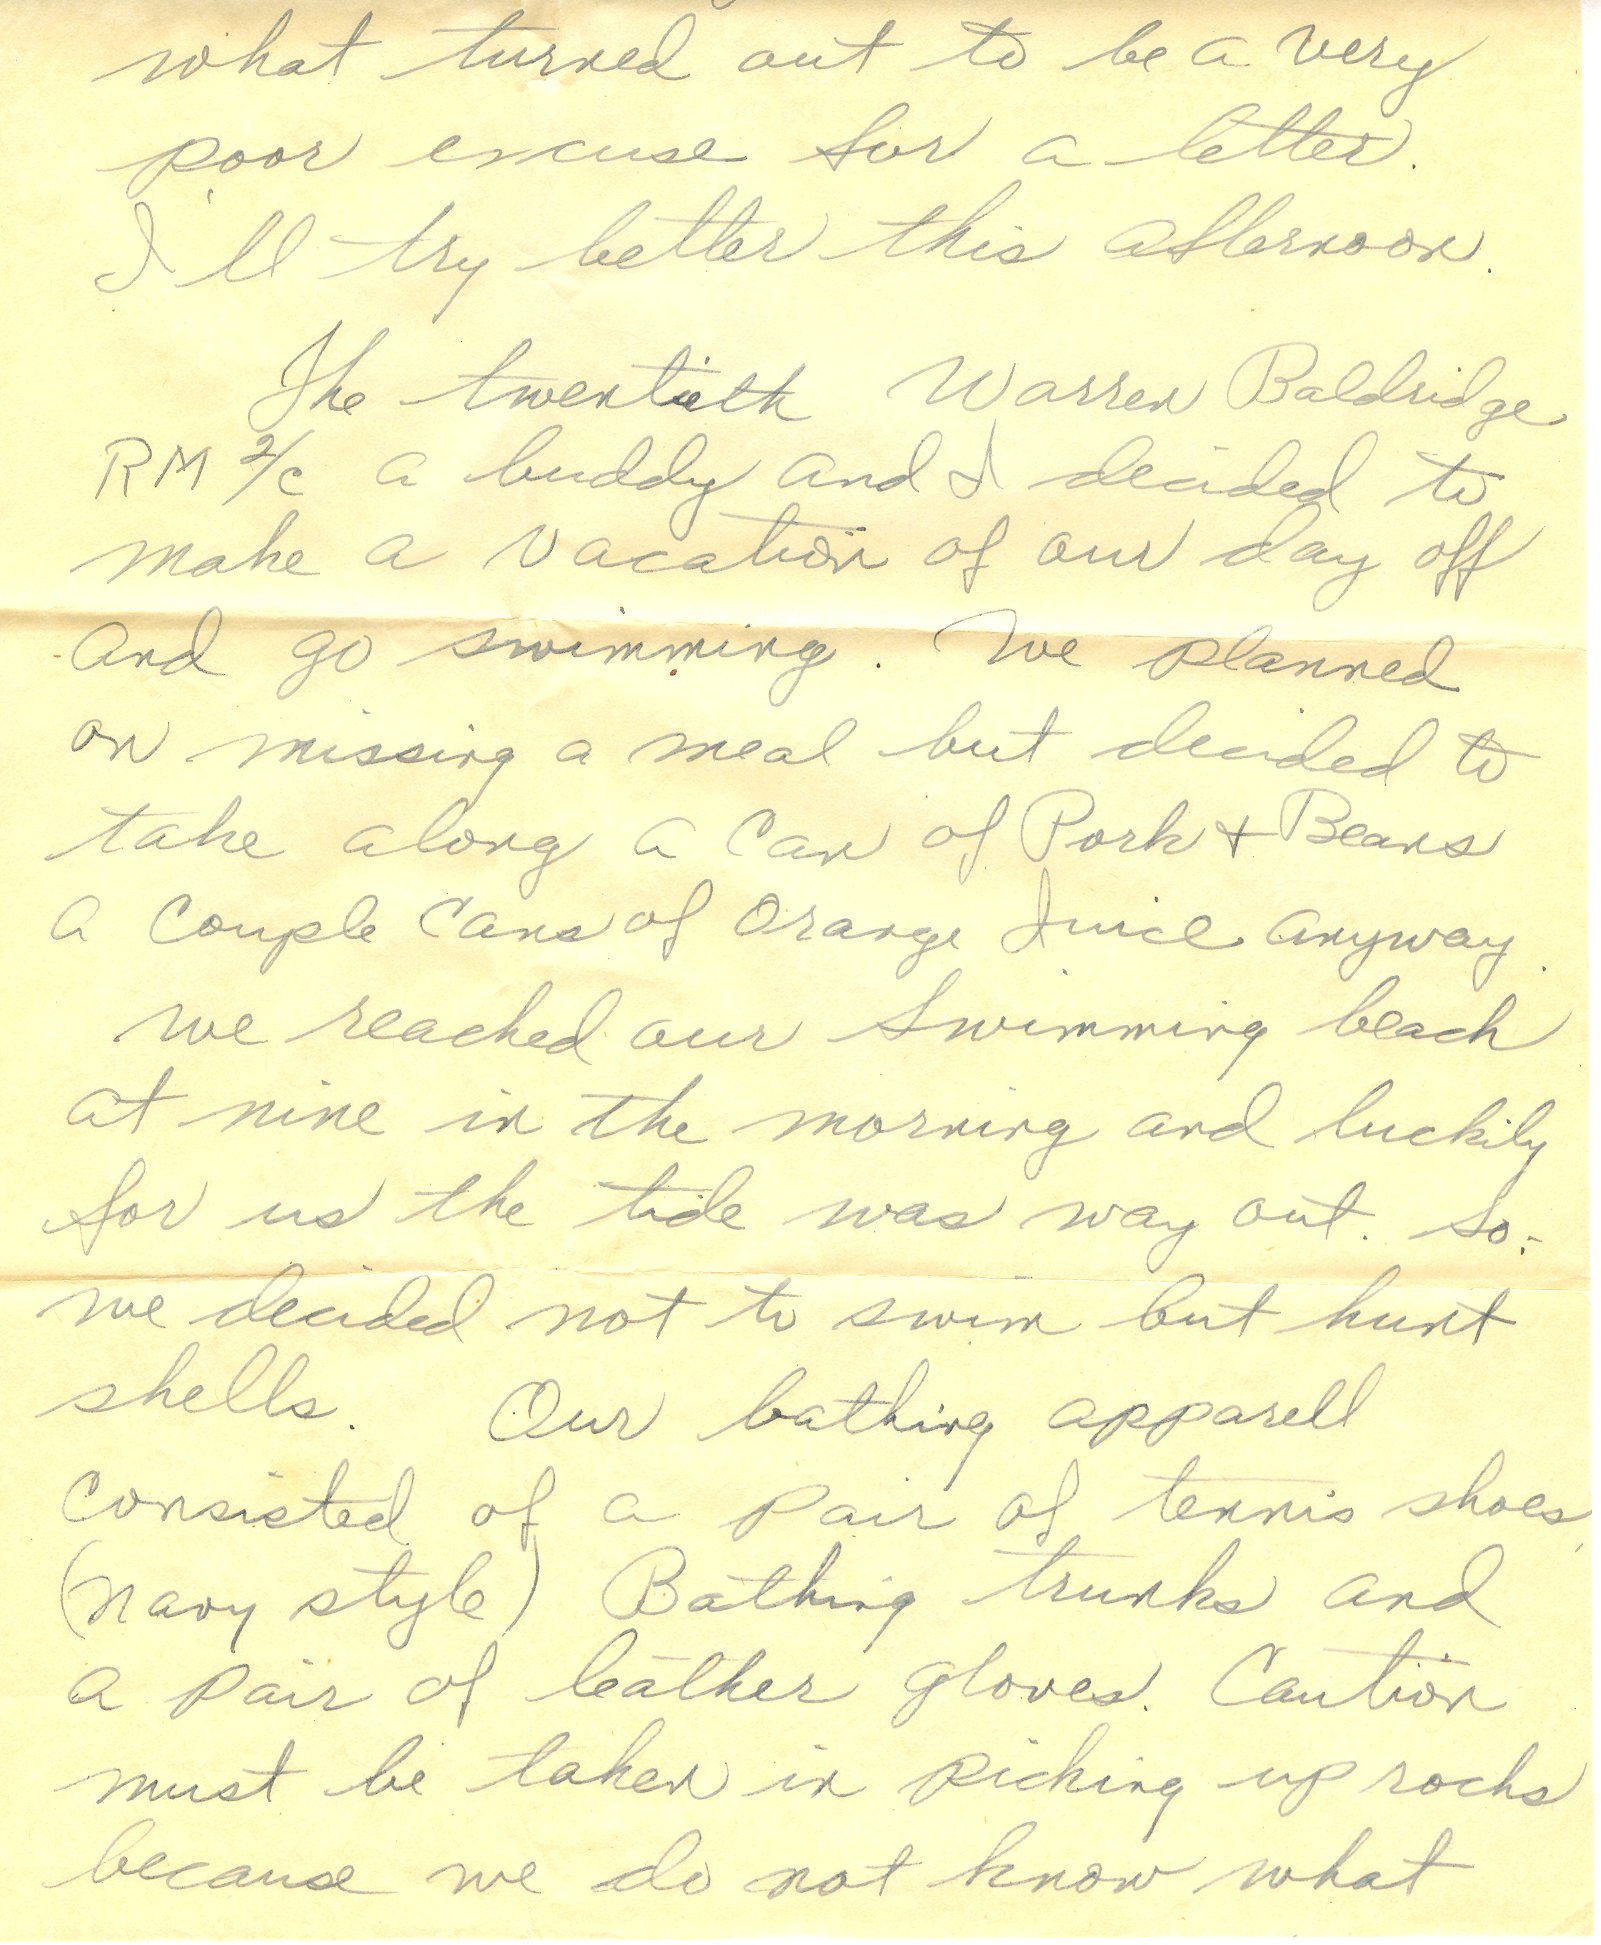 what turned out to be a very
poor excuse for a letter.
I'll try better this afternoon.
The twentieth Warren Baldridge
RM 2/c a buddy and I decided to
make a vacation of our day off
and go swimming. We planned
on missing a meal but decided to
take along a can of Pork + Beans
a couple cans of Orange Juice anyway.
we reached our swimming beach
at nine in the morning and luckily
for us the tide was way out. So-
we decided not to swim but hunt
shells. Our bathing apparell
consisted of a pair of tennis shoes,
(navy style) Bathing trunks and
a pair of leather gloves. Caution
must be taken in picking up rocks
because we do not know what